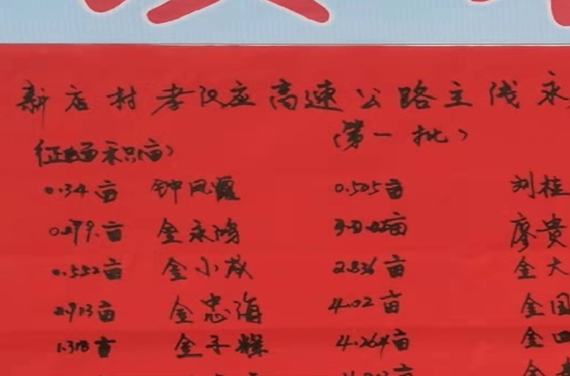 新店村孝汉应高速公路主线永
(第一批)
征地面积(亩)
0.34亩 钟凤霞 0.505亩 刘桂
0.979亩 金永鸿 亩 廖贵
0.552亩 金小成 2.836亩 金大
0.913亩 金忠海 4.02亩 金国
1.318亩 金子辉 4.264亩 金四